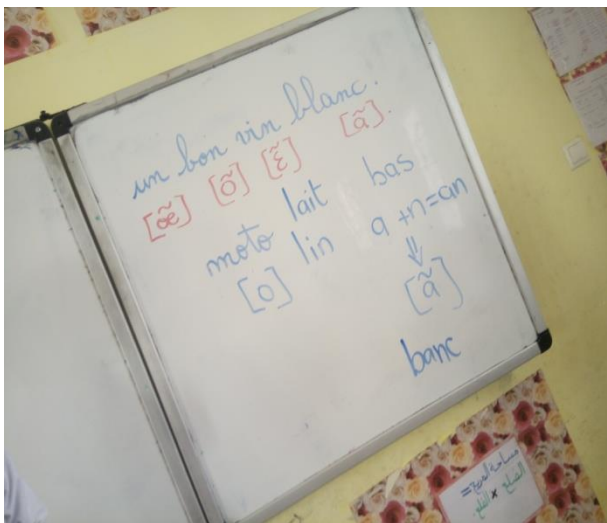 un bon vin blanc.
[œ̃] [õ] [ɛ̃] [ã].
moto lait bas
[o] lin a+n=an
⇓
[ã]
banc
مساحة المربع =
الضلع × الضلع.